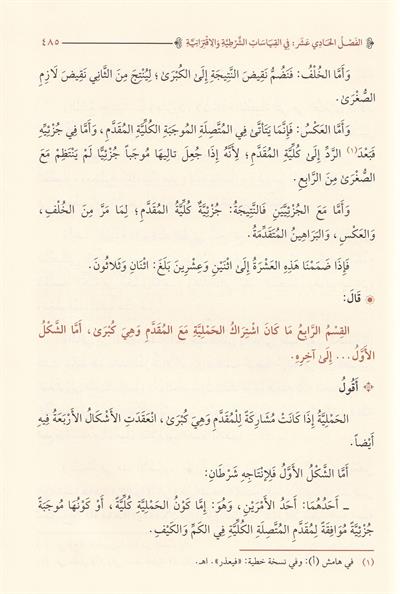 الفَصْلُ الحَادِي عَشَر: فِي القِيَاسَاتِ الشَّرْطِيَّةِ وَالِاقْتِرَانِيَّةِ ٤٨٥
وَأَمَّا الخُلْفُ: فَنَضُمُّ نَقِيضَ النَّتِيجَةِ إِلَى الكُبْرَىٰ؛ لِيُنْتِجَ مِنَ الثَّانِي نَقِيضَ لَازِمِ
الصُّغْرَىٰ.
وَأَمَّا العَكْسُ: فَإِنَّمَا يَتَأَتَّىٰ فِي المُتَّصِلَةِ المُوجَبَةِ الكُلِّيَّةِ المُقَدَّمِ، وَأَمَّا فِي جُزْئِيِّهِ
فَبَعْدَ(١) الرَّدِّ إِلَىٰ كُلِّيَّةِ المُقَدَّمِ؛ لِأَنَّهُ إِذَا جُعِلَ تَالِيهَا مُوجَباً جُزْئِيًّا لَمْ يَنْتَظِمْ مَعَ
الصُّغْرَىٰ مِنَ الرَّابِعِ.
وَأَمَّا مَعَ الجُزْئِيَّيْنِ فَالنَّتِيجَةُ: جُزْئِيَّةٌ كُلِّيَّةُ المُقَدَّمِ؛ لِمَا مَرَّ مِنَ الخُلْفِ،
وَالعَكْسِ، وَالبَرَاهِينِ المُتَقَدِّمَةِ.
فَإِذَا ضَمَمْنَا هَذِهِ العَشَرَةَ إِلَىٰ اثْنَيْنِ وَعِشْرِينَ بَلَغَ: اثْنَانِ وَثَلَاثُونَ.
قَالَ:
القِسْمُ الرَّابِعُ مَا كَانَ اشْتِرَاكُ الحَمْلِيَّةِ مَعَ المُقَدَّمِ وَهِيَ كُبْرَىٰ، أَمَّا الشَّكْلُ
الأَوَّلُ... إِلَىٰ آخِرِهِ.
أَقُولُ
الحَمْلِيَّةُ إِذَا كَانَتْ مُشَارِكَةً لِلْمُقَدَّمِ وَهِيَ كُبْرَىٰ، انْعَقَدَتِ الأَشْكَالُ الأَرْبَعَةُ فِيهِ
أَيْضاً.
أَمَّا الشَّكْلُ الأَوَّلُ فَلِإِنْتَاجِهِ شَرْطَانِ:
ـ أَحَدُهُمَا: أَحَدُ الأَمْرَيْنِ، وَهُوَ: إِمَّا كَوْنُ الحَمْلِيَّةِ كُلِّيَّةً، أَوْ كَوْنُهَا مُوجَبَةً
جُزْئِيَّةً مُوَافِقَةً لِمُقَدَّمِ المُتَّصِلَةِ الكُلِّيَّةِ فِي الكَمِّ وَالكَيْفِ.
(١) في هامش (أ): وفي نسخة خطية: «فيعذر». اهـ.